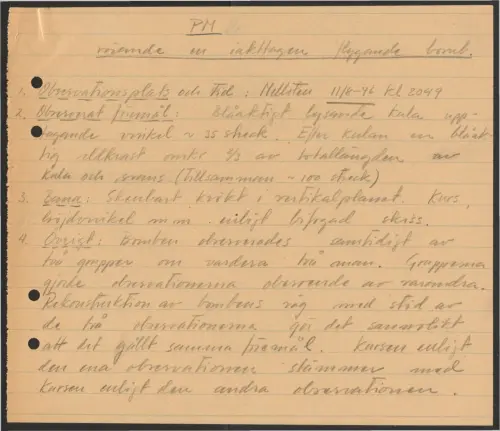 PM
rörande en iakttagen flygande bomb.
1. Observationsplats och tid: 11/8-46 kl 2049
2. Observerat föremål: Blåaktigt lysande kula upp-
tagande vinkel ~ 35 streck. Efter kulan en blåak-
tig eldkvast omkr 2/3 av totallängden av
kula och svans (Tillsammans ~ 100 streck)
3. Bana: Skenbart krökt i vertikalplanet. Kurs,
höjdvinkel m.m. enligt bifogad skiss.
4. Övrigt: Bomben observerades samtidigt av
två grupper om vardera två man. Grupperna
gjorde observationerna oberoende av varandra.
Rekonstruktion av bombens väg med stöd av
de två observationerna gör det sannolikt
att det gällt samma föremål. Kursen enligt
den ena observationen stämmer med
kursen enligt den andra observationen.